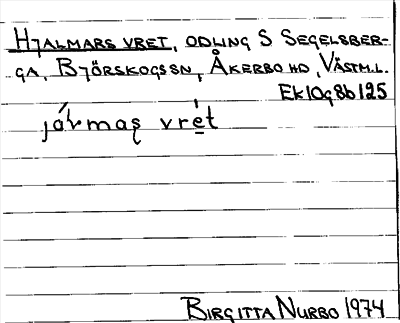 HJALMARS VRET, ODLING S SEGELSBER-
GA, BJÖRSKOGSSN, ÅKERBO HD, VÄSTM.L.
EK10g8b125
vrét
BIRGITTA NURBO 1974